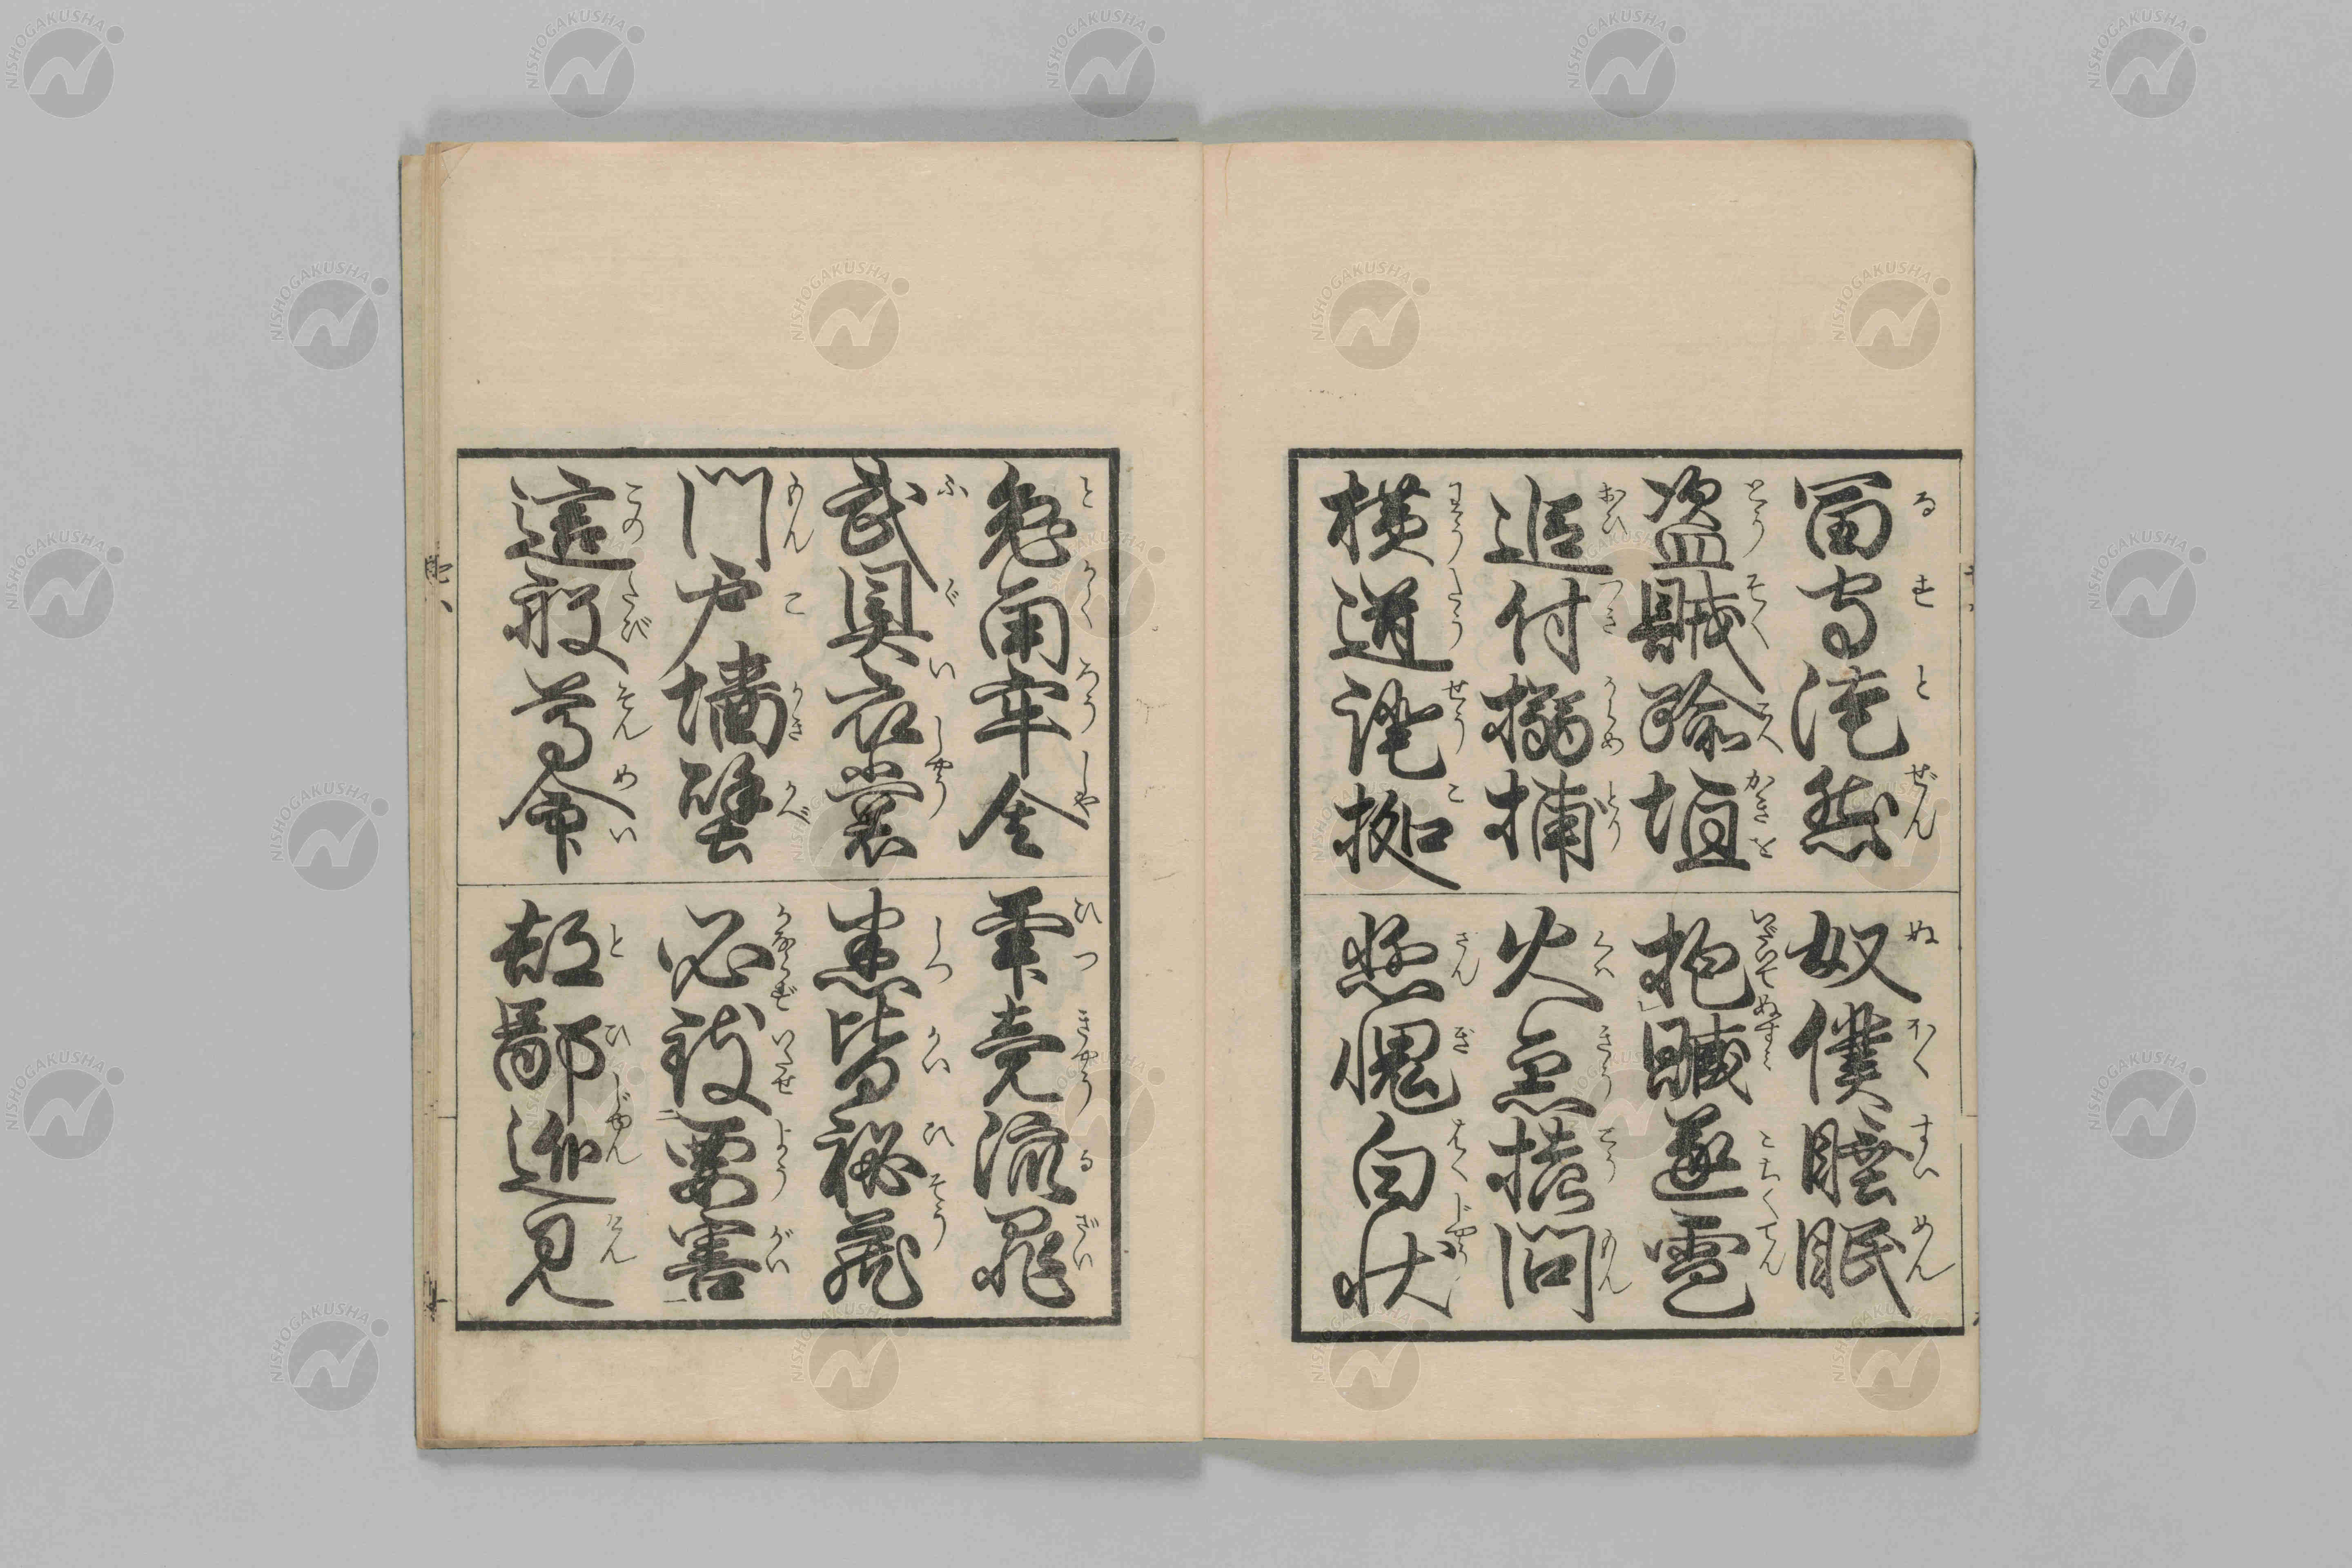 留守徒然 奴僕睡眠
るすとぜん ぬぼくすいめん
盗賊踰垣 抱贓逐電
とうそくこへかきを いだいてぬすミ ちくてん
追付搦捕 火急拷問
おひつきからめとり くハきうがうもん
横道證拠 慙愧白状
わうだうせうこ ざんぎはくじやう
兎角牢舎 畢竟流罪
とかくろうしや ひつきやうるざい
武具衣裳 悉皆秘蔵
ぶぐいしやう しつかいひそう
門戸墻壁 必致要害
もんこかきかべ かならずいたせようがい
這般尊命 都鄙巡見
このたびそんめい とひじゆんけん
NISHOGAKUSHA